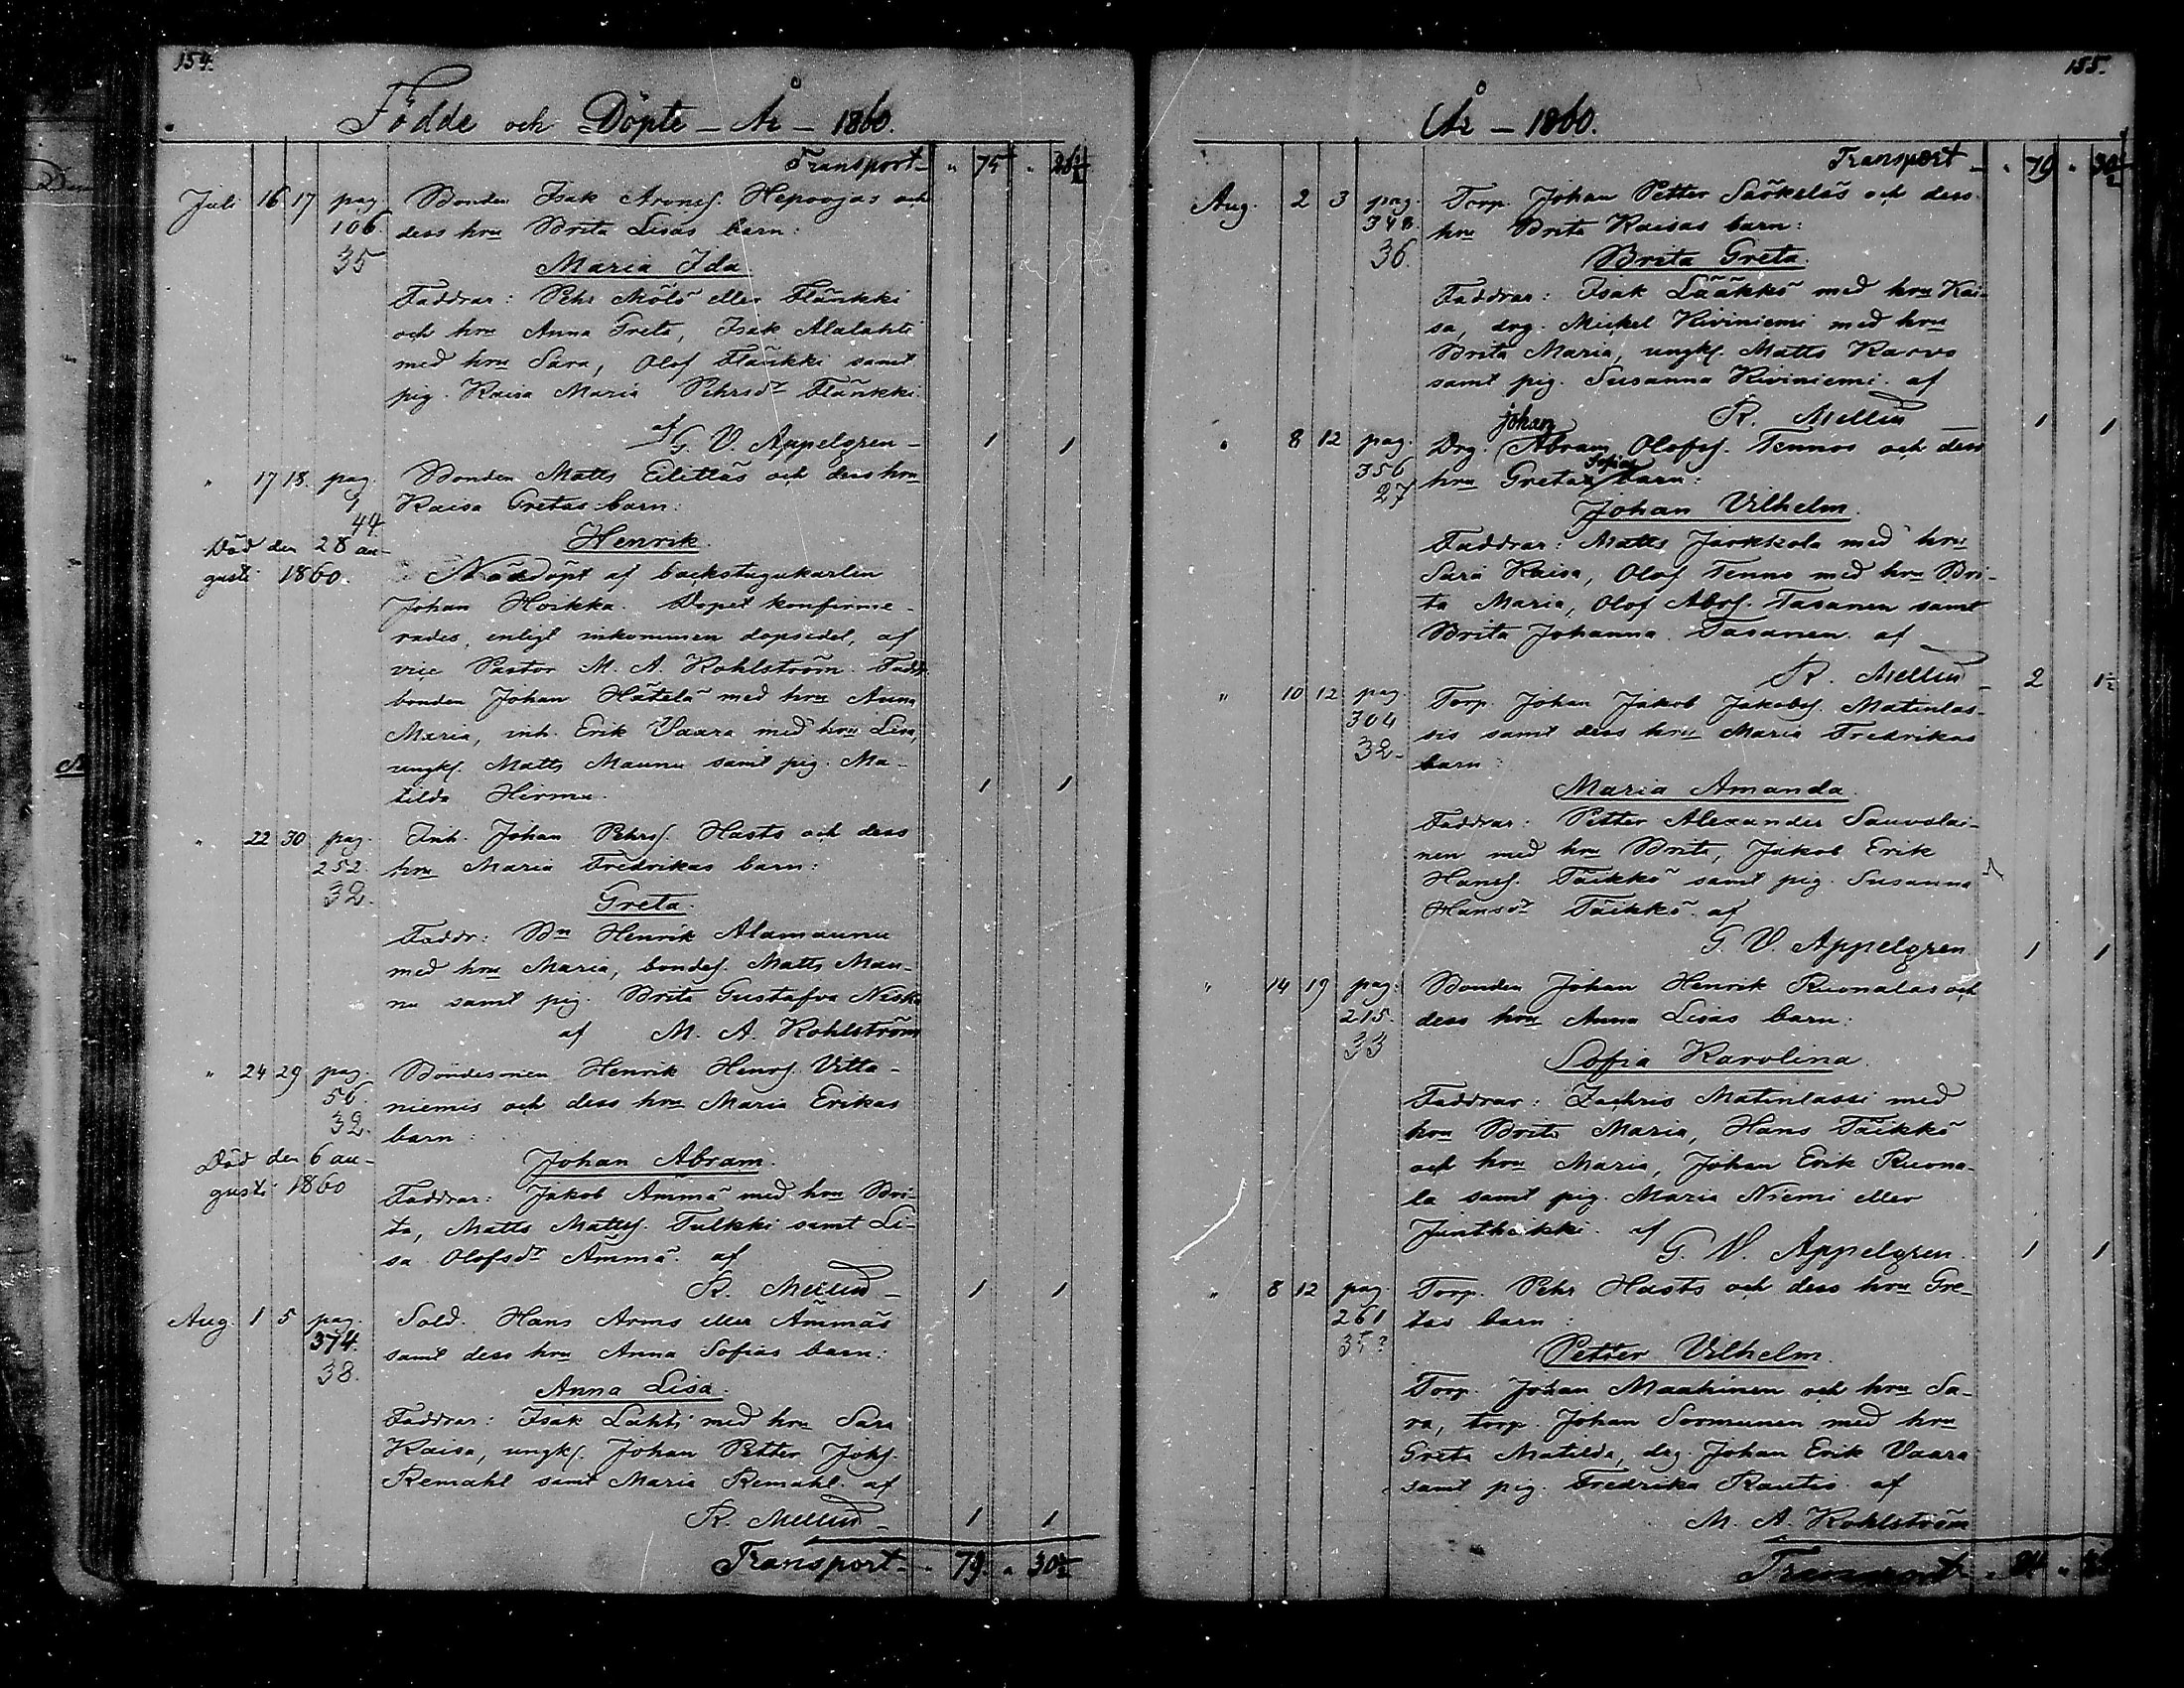 154.
Födde och Döpte – År – 1860.
Transport – " 75 " 26½
Juli 16 17 pag. Bonden Isak Aronss. Hepoojas och
106. dess hru Brita Lisas barn:
35 Maria Ida.
Faddrar: Pehr Mölö eller Flänkki
och hru Anna Greta, Isak Alalahti
med hru Sara, Olof Flänkki samt
pig. Kaisa Maria Pehrsdr Flänkki
af
G. V. Appelgren – 1 1
" 17 18. pag. Bonden Matts Eilittäs och dess hru
9 Kaisa Gretas barn:
44
Död den 28 au- Henrik.
gusti 1860. Nöddöpt af backstugukarlen
Johan Hoikka. Dopet konfirme-
rades, enligt inkommen dopsedel, af
vice Pastor M. A. Kohlström. Faddr.
bonden Johan Hätelä med hru Anna
Maria, inh. Erik Vaara med hru Lisa,
ungk. Matts Maunu samt pig. Ma-
tilda Hirmu. 1 1
" 22 30 pag. Inh. Johan Pehrss. Hasts och dess
252. hru Maria Fredrikas barn:
32. Greta.
Faddr: Bn Henrik Alamaunu
med hru Maria, bondes. Matts Mau-
nu samt pig. Brita Gustafva Niska
af M. A. Kohlström
" 24 29 pag. Bondesonen Henrik Henrs. Vitta-
56. niemis och dess hru Maria Erikas
32. barn:
Död den 6 au- Johan Abram.
gusti 1860 Faddrar: Jakob Ämmä med hru Bri-
ta, Matts Mattss. Tulkki samt Li-
sa Olofsdr Ämmä. af
R. Mellin – 1 1
Aug. 1 5 pag. Sold. Hans Arms eller Ämmäs
374. samt dess hru Anna Sofias barn:
38. Anna Lisa.
Faddrar: Isak Lahti med hru Sara
Kaisa, ungk. Johan Petter Johs.
Remahl samt Maria Remahl. af
R. Mellin – 1 1
Transport – " 79. " 30½
155.
År – 1860.
Transport – " 79 " 30½
Aug. 2 3 pag. Torp. Johan Petter Särkeläs och dess
348. hru Brita Kaisas barn:
36. Brita Greta.
Faddrar: Isak Lääkkö med hru Kai-
sa, drg. Mickel Kiviniemi med hru
Brita Maria, ungk. Matts Karvo
samt pig. Susanna Kiviniemi. af
R. Mellin 1 1
johan
" 8 12 pag. Drg. Abram Olofss. Tennos och dess
356 hru Gretas Sofias barn:
27 Johan Vilhelm.
Faddrar: Matts Jarkkola med hru
Sara Kaisa, Olof Tenno med hru Bri-
ta Maria, Olof Abrs. Tasanen samt
Brita Johanna Tasanen. af
R. Mellin – 2 1½
" 10 12 pag. Torp. Johan Jakob Jakobs. Matinlas-
304 sis samt dess hru Maria Fredrikas
32- barn:
Maria Amanda.
Faddrar: Petter Alexander Sauvolai-
nen med hru Brita, Jakob Erik
Hanss. Täikkö samt pig. Susanna
Hansdr Täikkö. af
G. V. Appelgren. 1 1
" 14 19 pag. Bonden Johan Henrik Ruonalas och
215. dess hru Anna Lisas barn:
33 Sofia Karolina.
Faddrar: Zachris Matinlassi med
hru Brita Maria, Hans Täikkö
och hru Maria, Johan Erik Ruona-
la samt pig. Maria Niemi eller
af
G. V. Appelgren. 1 1
" 8 12 pag. Torp. Pehr Hasts och dess hru Gre-
261 tas barn:
35? Petter Vilhelm.
Torp. Johan Maahinen och hru Sa-
ra, torp. Johan Sormunen med hru
Greta Matilda, drg. Johan Erik Vaara
samt pig. Fredrika Rautio. af
M. A. Kohlström
Transport – " 84 "